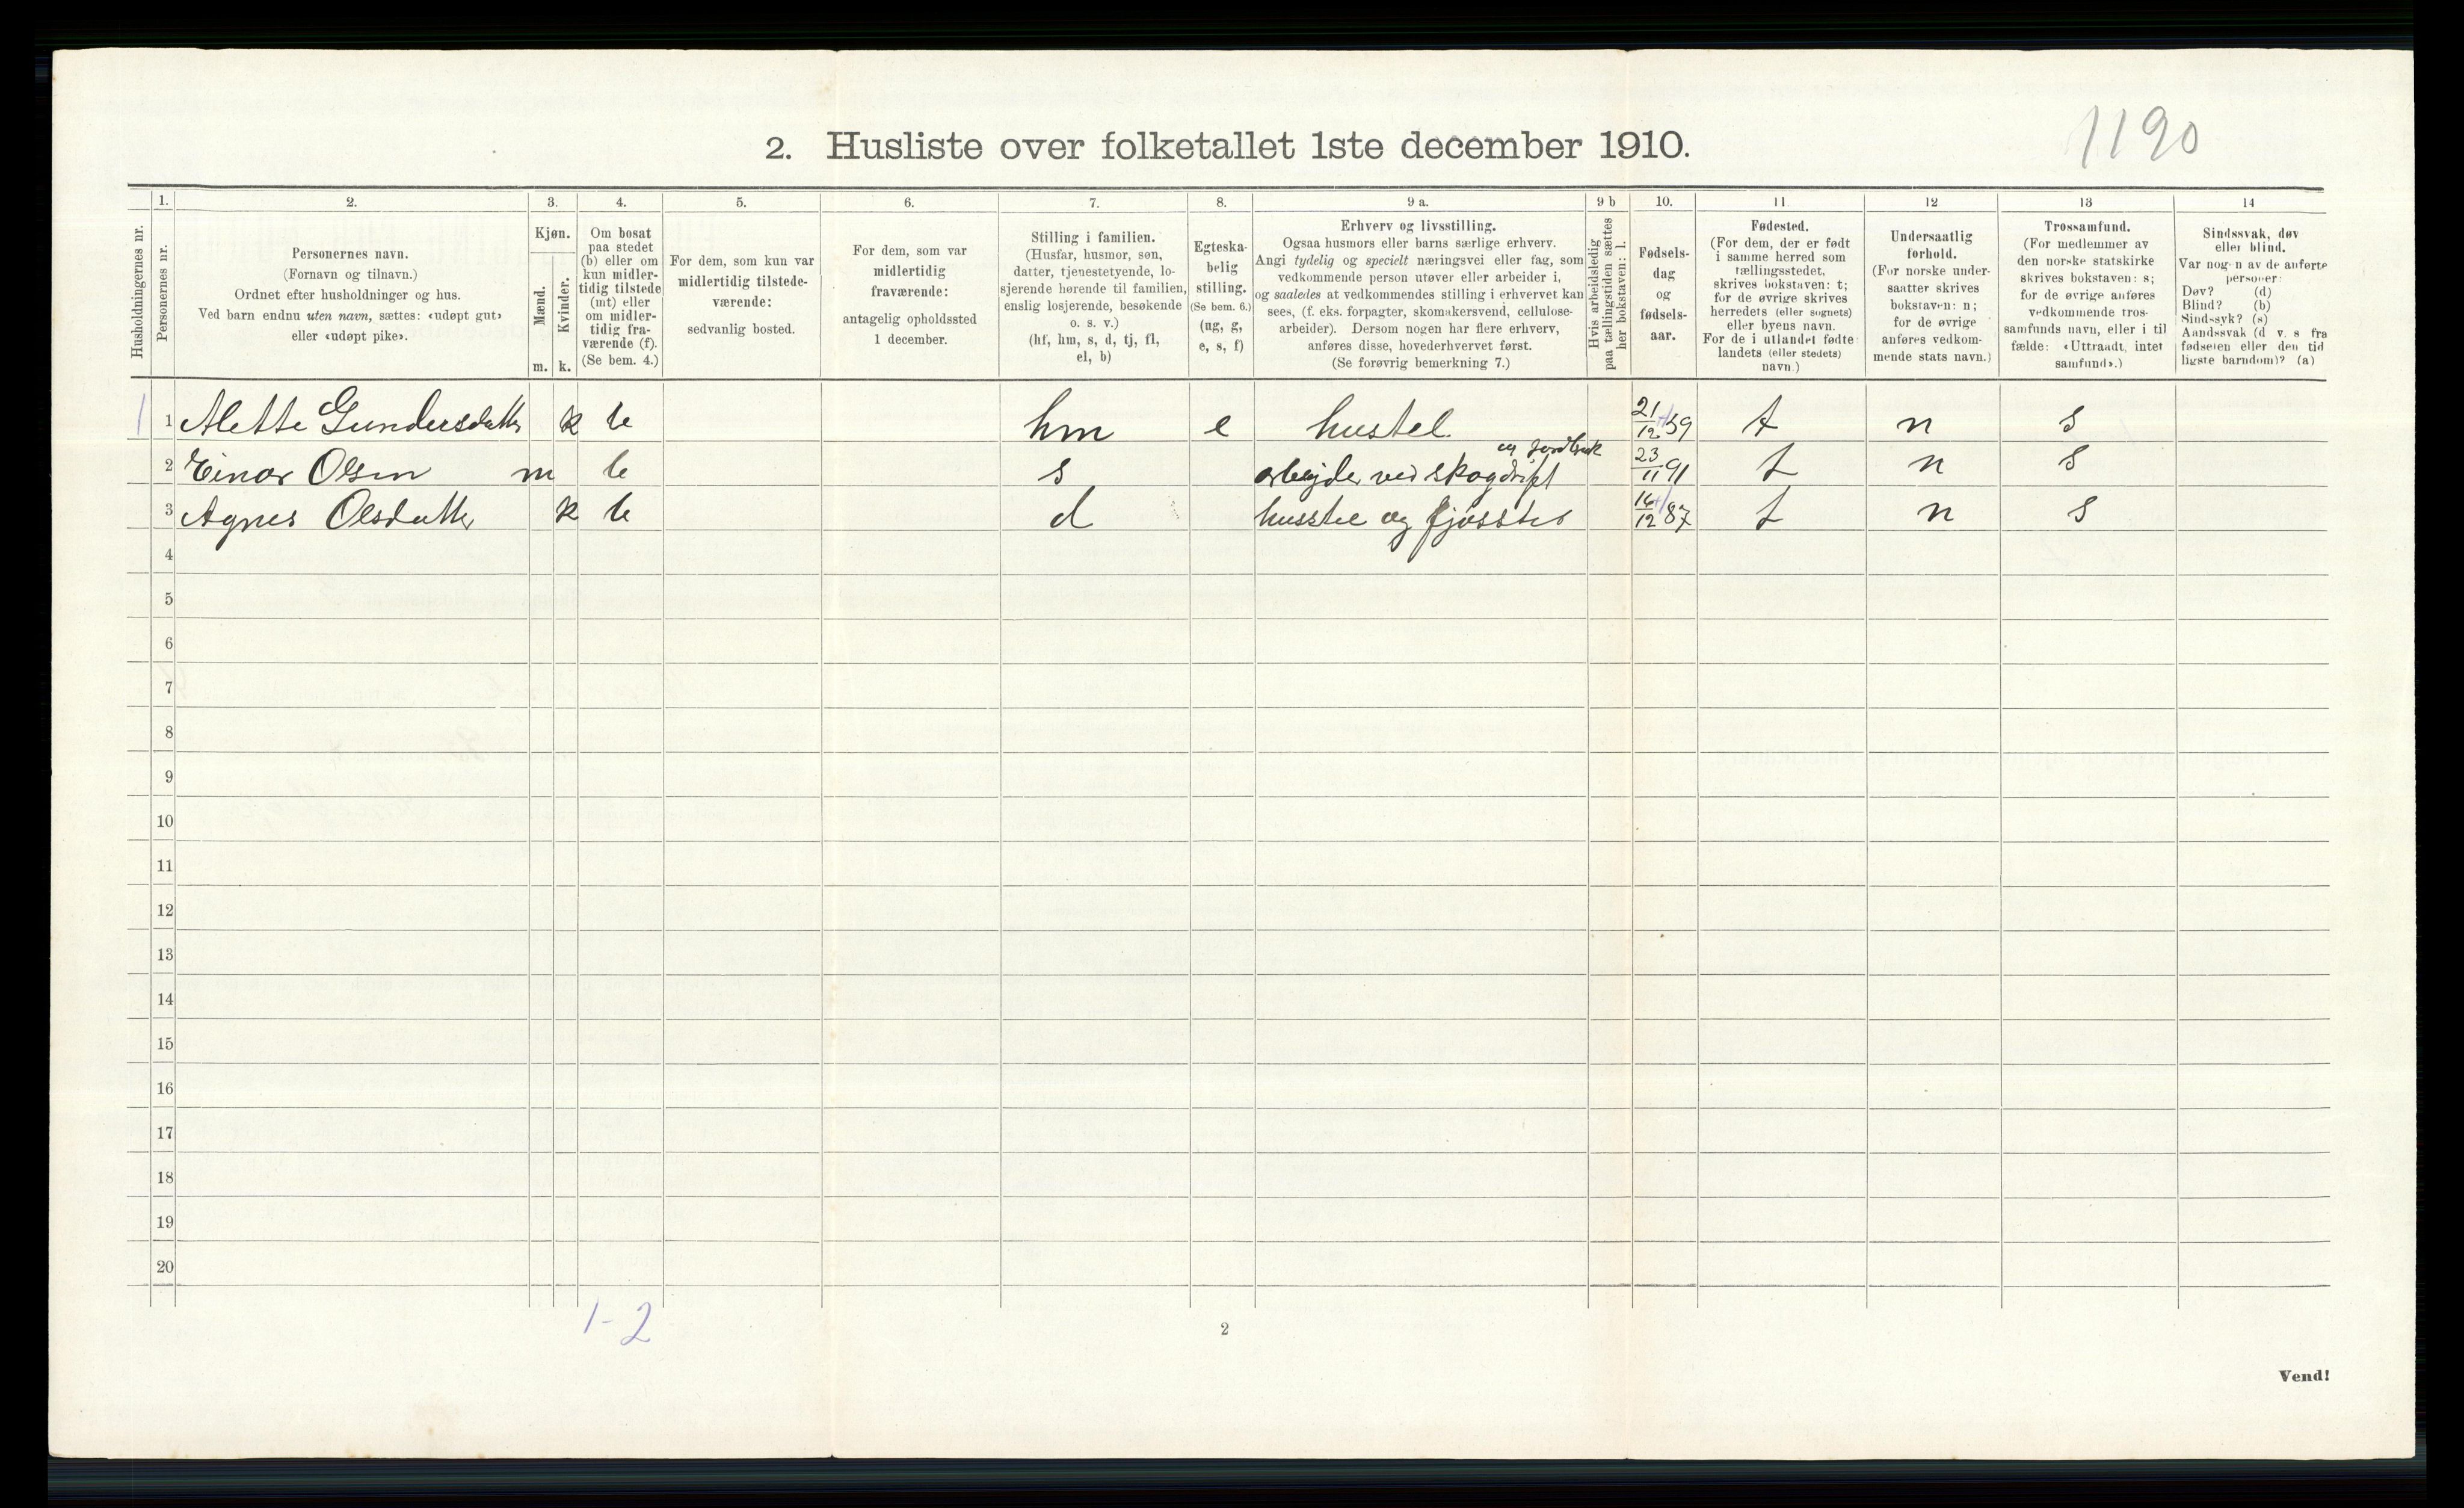 1190
2. Husliste over folketallet 1ste december 1910.
Husholdningernes nr.
1.
Personernes nr.
2.
Personernes navn.
(Fornavn og tilnavn.)
Ordnet efter husholdninger og hus.
Ved barn endnu uten navn, sættes: «udøpt gut»
eller «udøpt pike».
3.
Kjøn.
Mænd.
m.
Kvinder.
k.
4.
Om bosat
paa stedet
(b) eller om
kun midler-
tidig tilstede
(mt) eller
om midler-
tidig fra-
værende (f).
(Se bem. 4.)
5.
For dem, som kun var
midlertidig tilstede-
værende:
sedvanlig bosted.
6.
For dem, som var
midlertidig
fraværende:
antagelig opholdssted
1 december.
7.
Stilling i familien.
(Husfar, husmor, søn,
datter, tjenestetyende, lo-
sjerende hørende til familien,
enslig losjerende, besøkende
o. s. v.)
(hf, hm, s, d, tj, fl,
el, b)
8.
Egteska-
belig
stilling.
(Se bem. 6.)
(ug, g,
e, s, f)
9 a.
Erhverv og livsstilling.
Ogsaa husmors eller barns særlige erhverv.
Angi tydelig og specielt næringsvei eller fag, som
vedkommende person utøver eller arbeider i,
og saaledes at vedkommendes stilling i erhvervet kan
sees, (f. eks. forpagter, skomakersvend, cellulose-
arbeider). Dersom nogen har flere erhverv,
anføres disse, hovederhvervet først.
(Se forøvrig bemerkning 7.)
9 b
Hvis arbeidsledig
paa tællingstiden sættes
her bokstaven: l.
10.
Fødsels-
dag
og
fødsels-
aar.
11
Fødested.
(For dem, der er født
i samme herred som
tællingsstedet,
skrives bokstaven: t;
for de øvrige skrives
herredets (eller sognets)
eller byens navn.
For de i utlandet fødte:
landets (eller stedets)
navn.)
12
Undersaatlig
forhold.
(For norske under-
saatter skrives
bokstaven: n;
for de øvrige
anføres vedkom-
mende stats navn.)
13
Trossamfund.
(For medlemmer av
den norske statskirke
skrives bokstaven: s;
for de øvrige anføres
vedkommende tros-
samfunds navn, eller i til
fælde: «Uttraadt, intet
samfund».)
14
Sindssvak, døv
eller blind.
Var nogen av de anførte
personer:
Døv? (d)
Blind? (b)
Sindssyk? (s)
Aandssvak (d v. s fra
fødselen eller den tid
ligste barndom)? (a)
1 1 Alette Gundersdatter k b hm e hustel 21/12 59 t n s
og jordbruk
2 Einar Olsen m b s arbejder ved skogdrift 23/11 91 t n s
3 Agnes Olsdatter k b d husstel og fjøsstel 16/12 87 t n s
4
5
6
7
8
9
10
11
12
13
14
15
16
17
18
19
20
1-2
2
Vend!